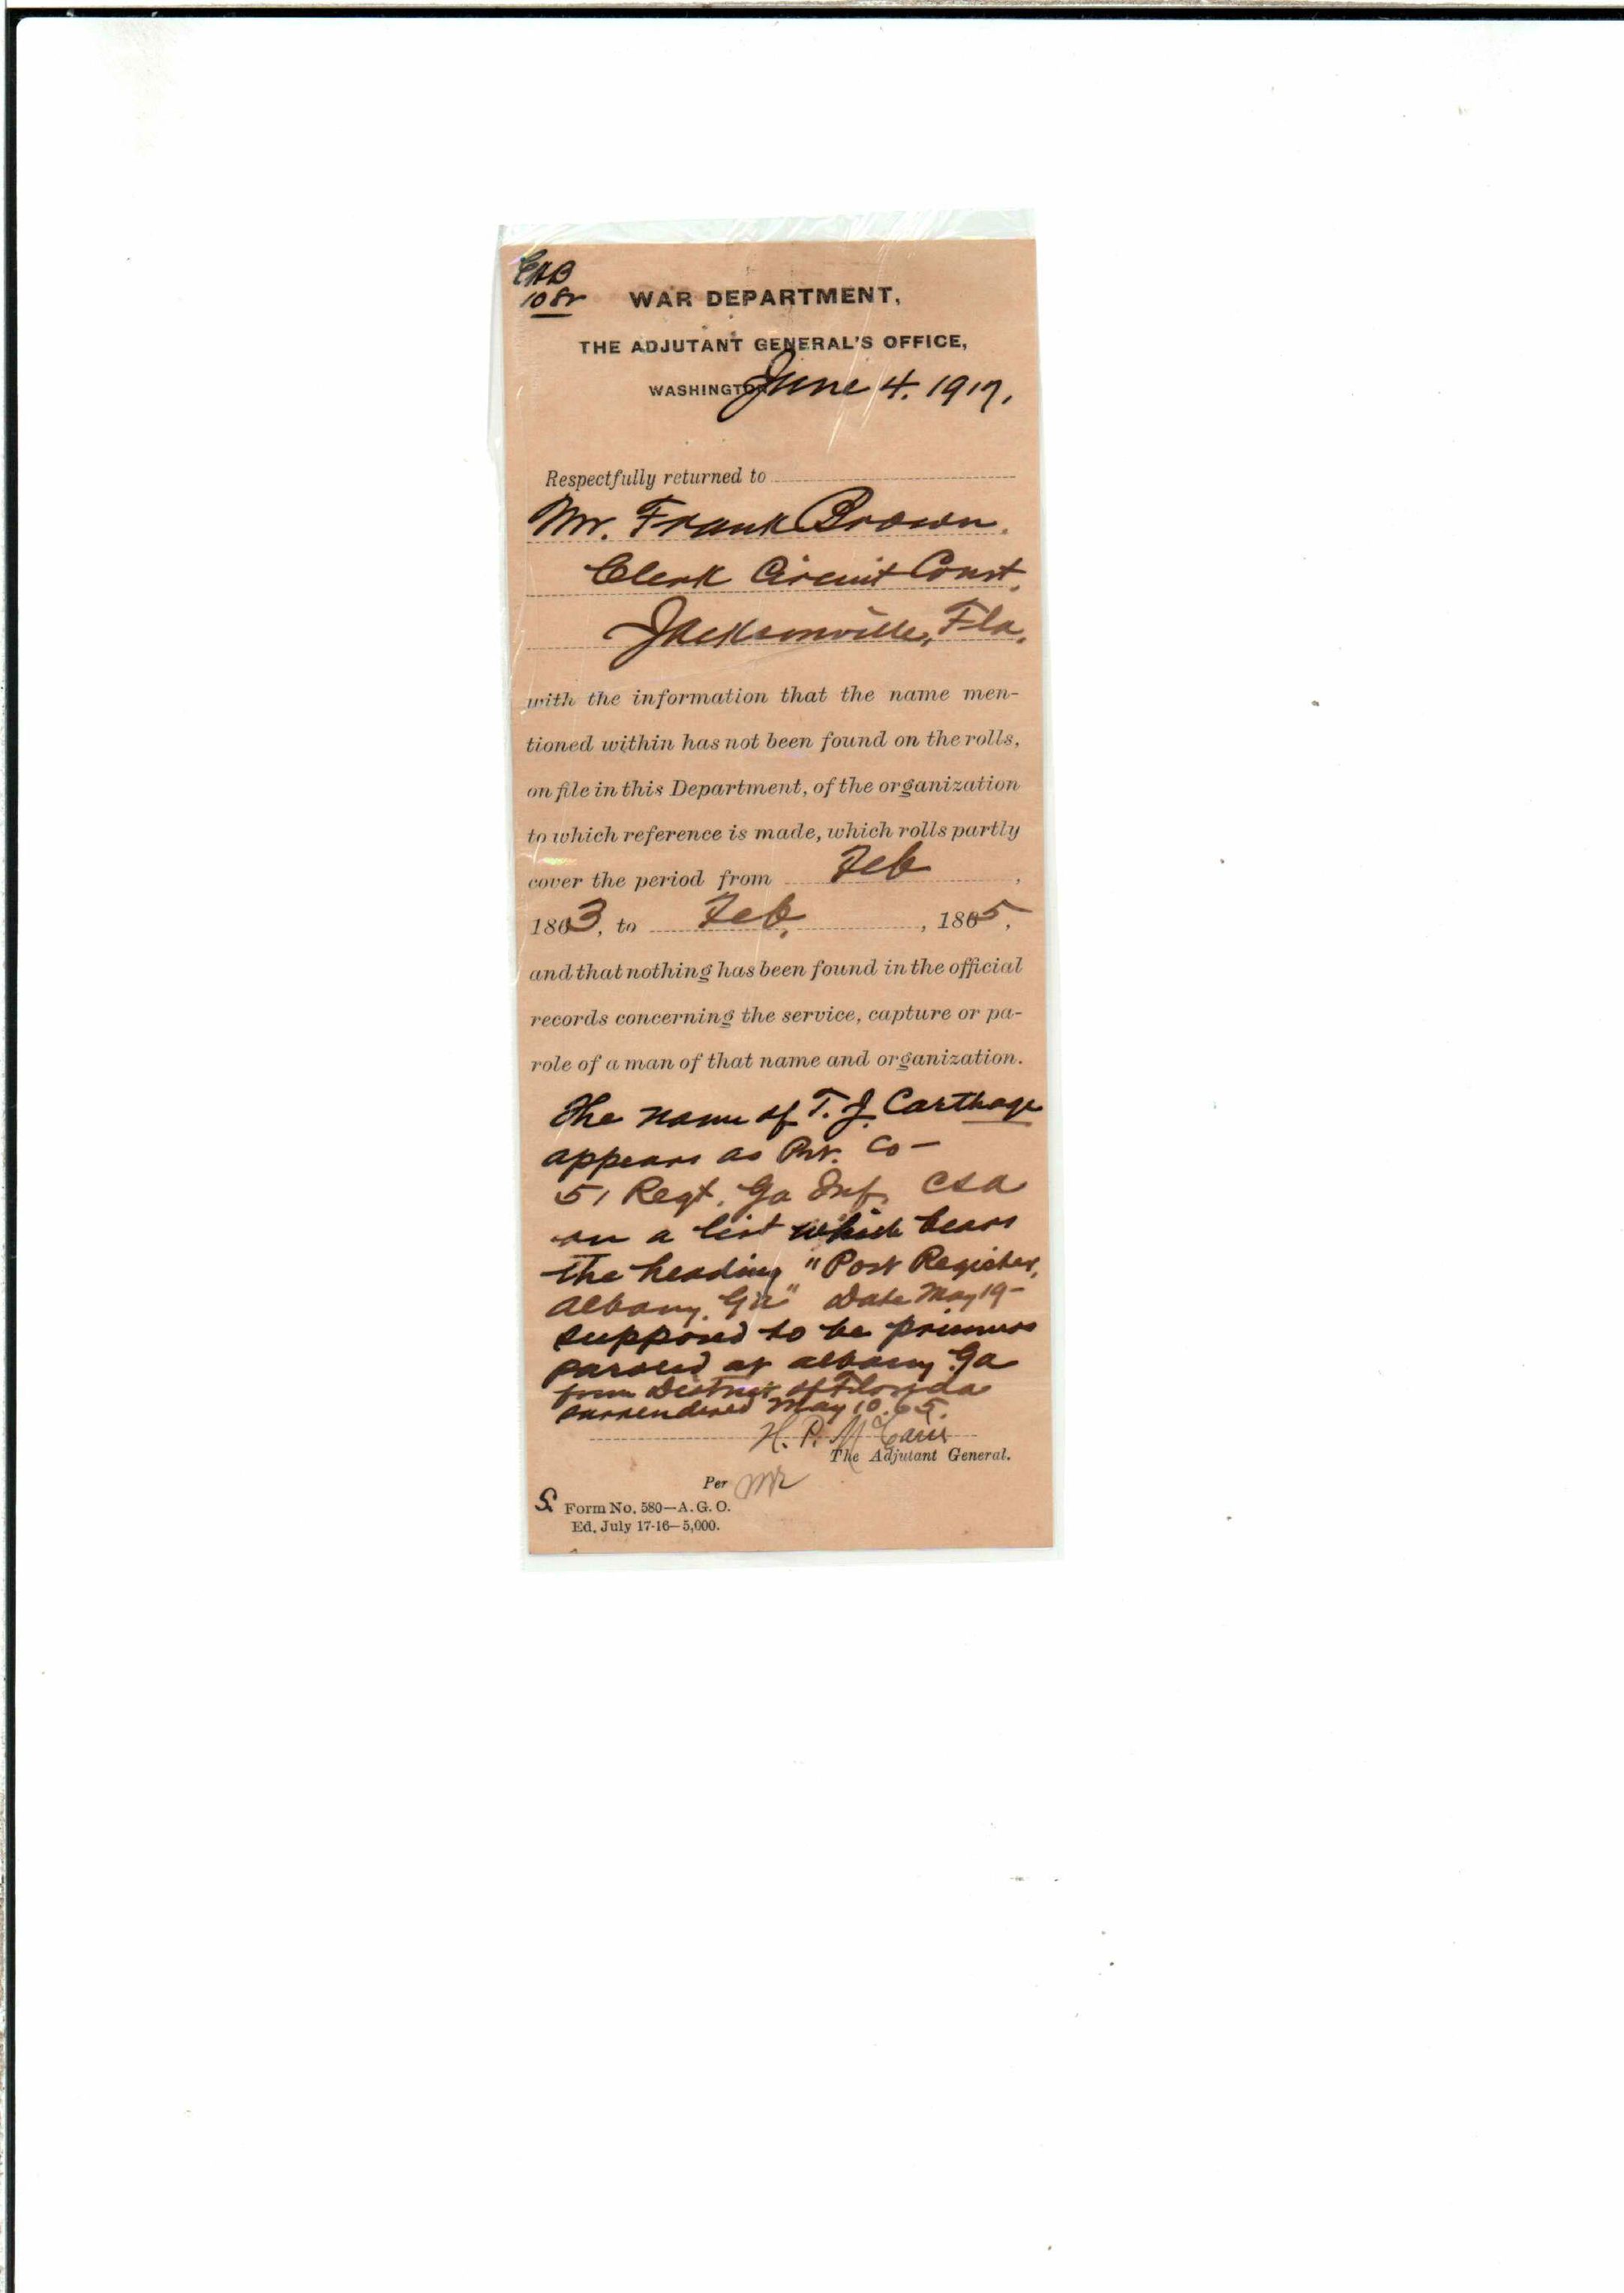 WAR DEPARTMENT,
THE ADJUTANT GENERAL'S OFFICE,
WASHINGTON June 4. 1917.
Respectfully returned to
Mr. Frank Brown.
Clerk Circuit Court,
Jacksonville, Fla.
with the information that the name men-
tioned within has not been found on the rolls,
on file in this Department, of the organization
to which reference is made, which rolls partly
cover the period from Feb ,
1863, to Feb. , 1865,
and that nothing has been found in the official
records concerning the service, capture or pa-
role of a man of that name and organization.
The name of T. J. Carthage
appears as Pvt. Co —
51 Regt. Ga Inf. CSA
on a list which bears
the heading "Post Register,
Albany, Ga" Date May 19 -
supposed to be prisoners
paroled at Albany Ga
from District of Florida
surrendered May 10. 65.
H. P. McCain
The Adjutant General.
Per
S. Form No. 580—A. G. O.
Ed. July 17-16—5,000.